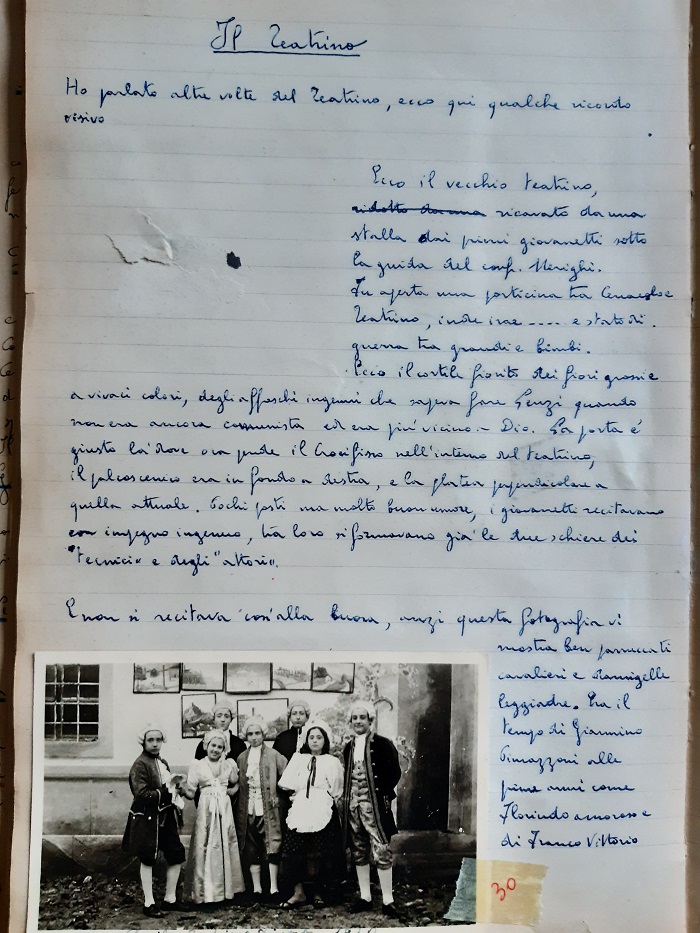 Il Teatrino
Ho parlato altre volte del Teatrino, ecco qui qualche ricordo
visivo
Ecco il vecchio teatrino,
ridotto da una ricavato da una
stalla dai primi giovanetti sotto
la guida del conf. Merighi.
Fu aperta una porticina tra Cenacolo e
Teatrino, inde irae ---- e stato di
guerra tra grandi e bimbi.
Ecco il cortile fiorito dei fiori grossi e
a vivaci colori, degli affreschi ingenui che sapeva fare Genzi quando
non era ancora comunista ed era più vicino a Dio. La porta è
giusto là dove ora pende il Crocifisso nell'interno del teatrino,
il palcoscenico era in fondo a destra, e la platea perpendicolare a
quella attuale. Pochi posti ma molto buon umore, i giovanetti recitavano
con impegno ingenuo, tra loro si formavano già le due schiere dei
"tecnici" e degli "attori".
E non si recitava così alla buona, anzi questa fotografia vi
mostra ben parruccati
cavalieri e damigelle
leggiadre. Era il
tempo di Giannino
Pimazzoni alle
prime armi come
Florindo amoroso e
di Franco Vittorio
30